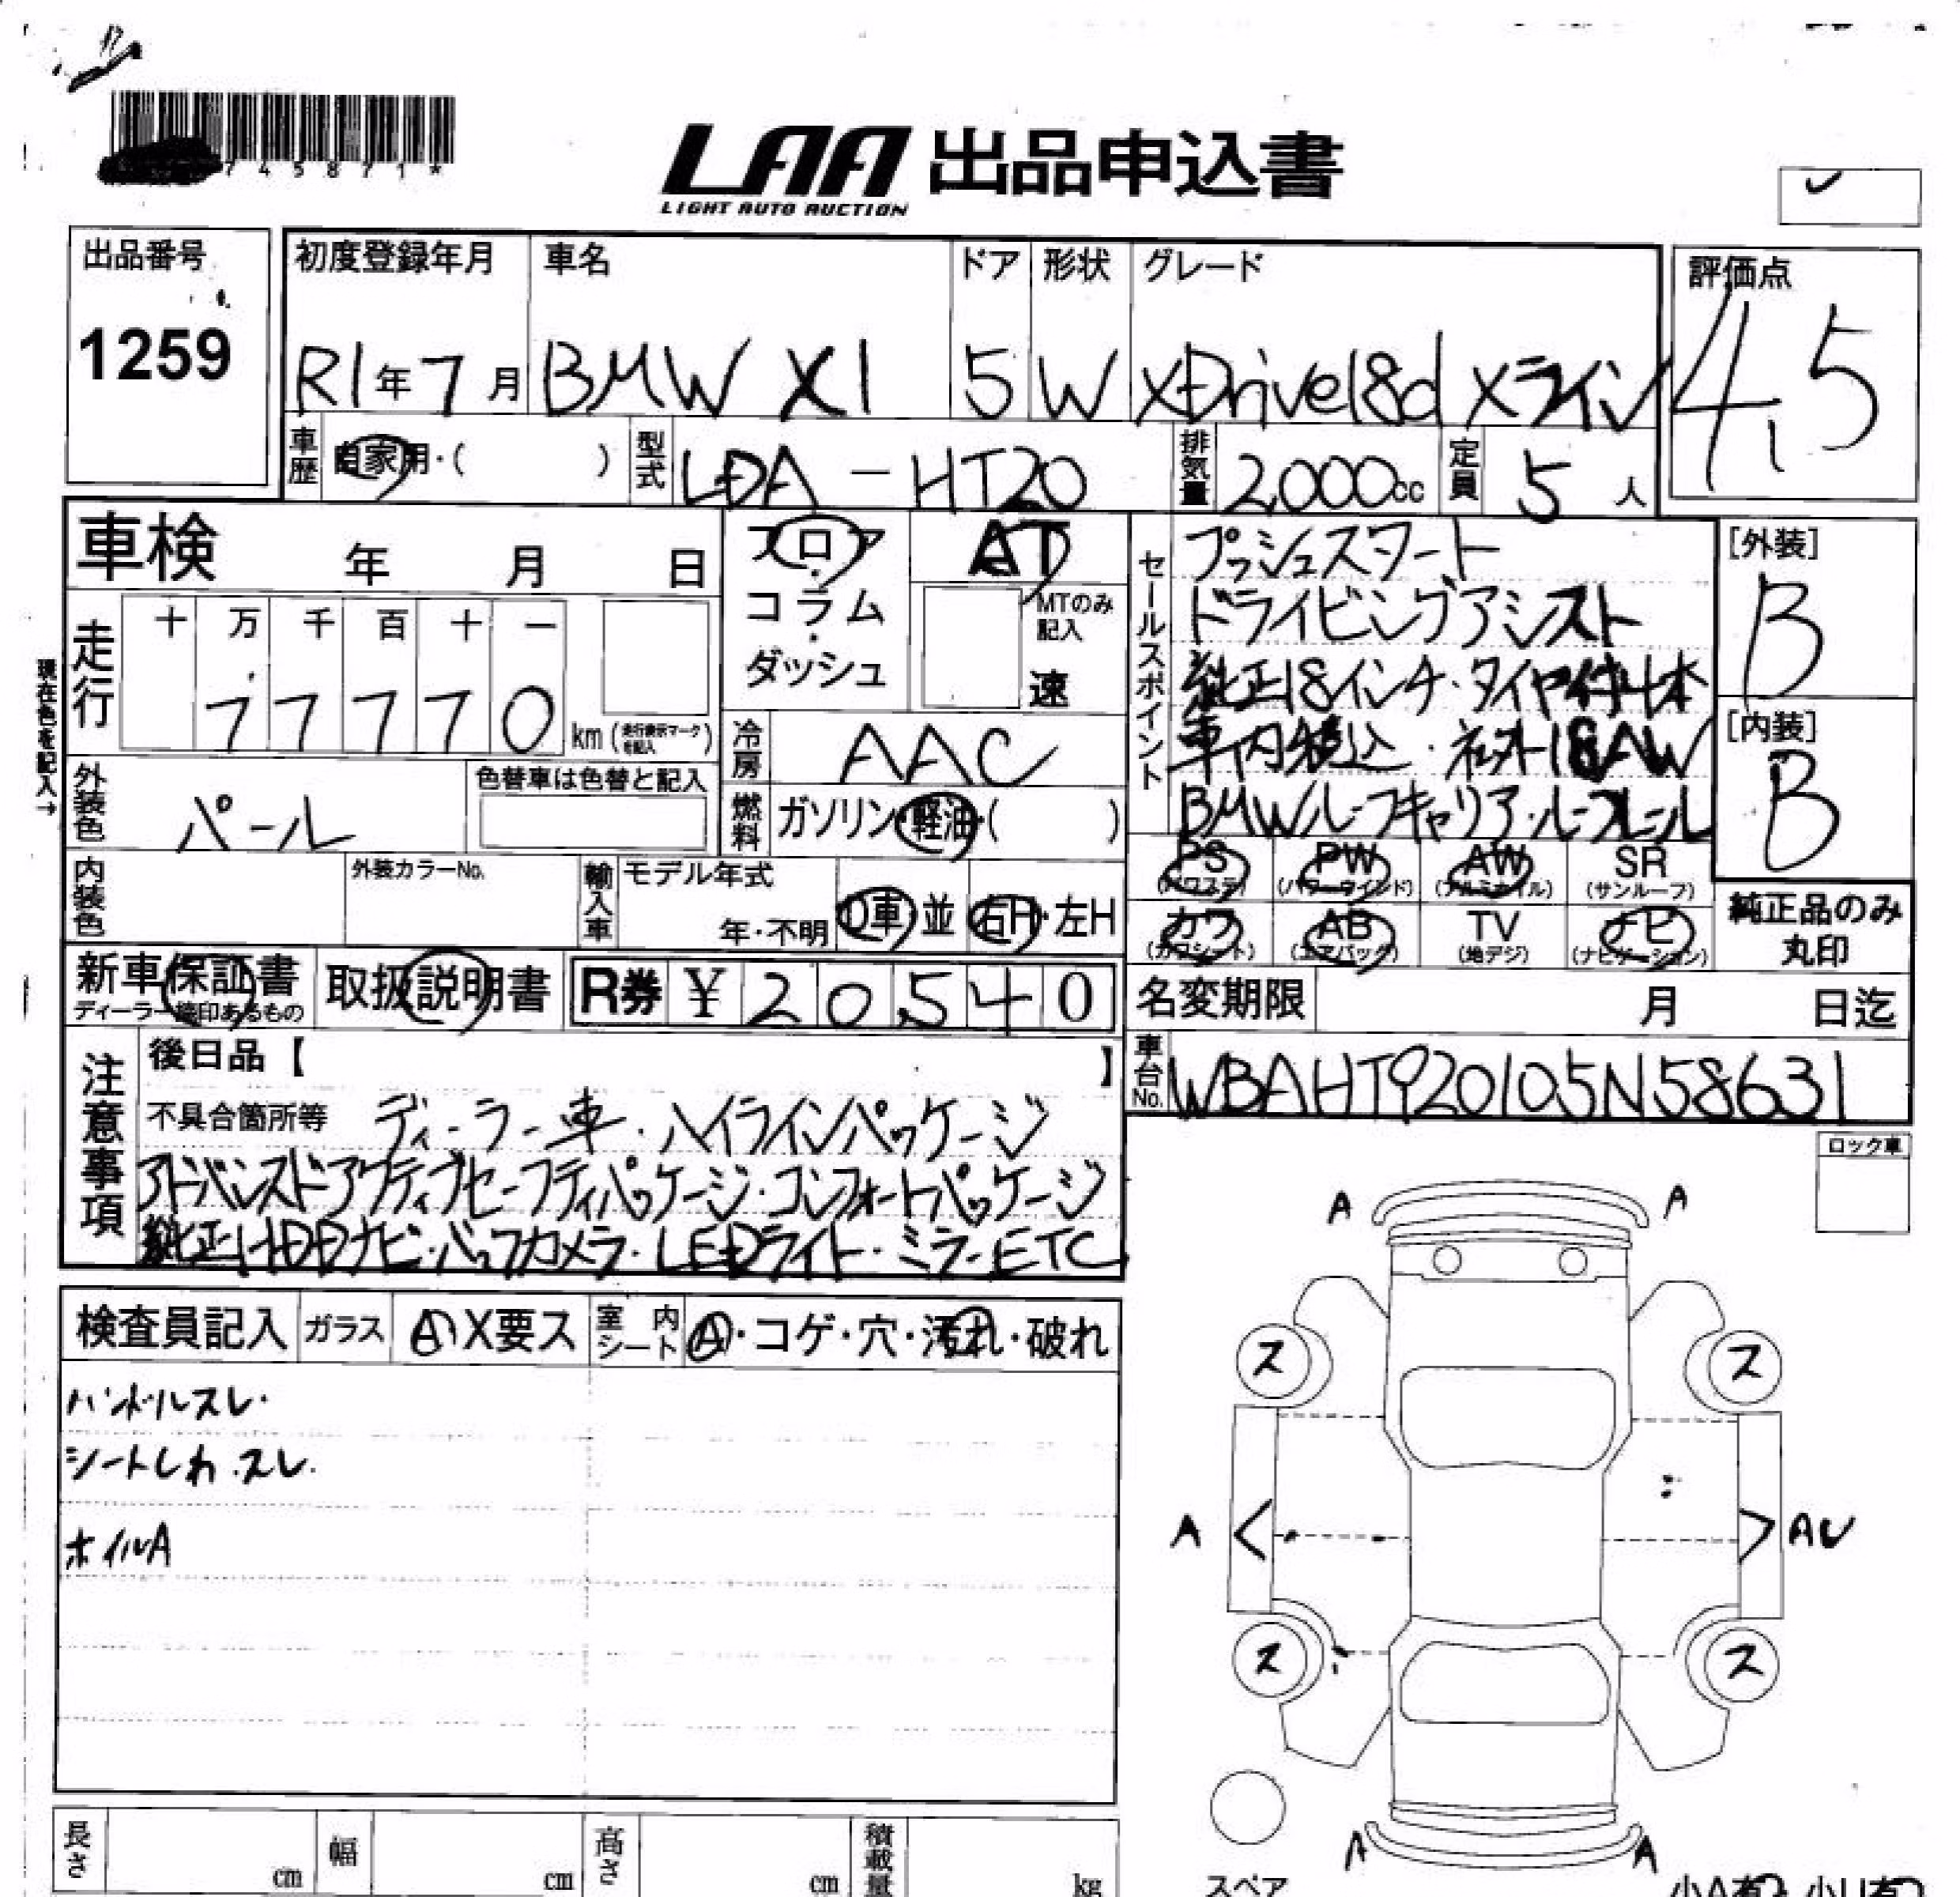 7 4 5 8 7 1 *
LAA 出品申込書
LIGHT AUTO AUCTION
出品番号
1259
初度登録年月 車名 ドア 形状 グレード
R1年7月 BMW X1 5 W xDrive18d Xライン
評価点
4.5
車歴 自家用・( ) 型式 LDA-HT20 排気量 2,000cc 定員 5人
車検 年 月 日
フロア・コラム・ダッシュ
AT
MTのみ記入
速
走行
十 万 千 百 十 一
7 7 7 7 0 km (走行表示マークを記入)
現在色を記入→
冷房 AAC
外装色 パール
色替車は色替と記入
燃料 ガソリン・軽油・( )
内装色
外装カラーNo.
輸入車 モデル年式
年・不明 D車・並 右H・左H
セールスポイント
プッシュスタート
ドライビングアシスト
純正18インチ・タイヤ付4本
車内積込・社外18AW
BMWルーフキャリア・ルーフレール
[外装]
B
[内装]
B
PS (パワステ) PW (パワーウインド) AW (アルミホイル) SR (サンルーフ)
カワ (カワシート) AB (エアバッグ) TV (地デジ) ナビ (ナビゲーション)
純正品のみ丸印
新車保証書
ディーラー捺印あるもの
取扱説明書
R券 ¥ 2 0 5 4 0
名変期限 月 日迄
車台No. WBAHT920105N58631
注意事項
後日品【 】
不具合箇所等 ディーラー車・ハイラインパッケージ
アドバンスドアクティブセーフティパッケージ・コンフォートパッケージ
純正HDDナビ・バックカメラ・LEDライト・ミラーETC
ロック車
検査員記入 ガラス A・X要ス 室内シート A・コゲ・穴・汚れ・破れ
ハンドルスレ・
シートしわ・スレ・
ホイルA
A A
ス ス
A AU
ス ス
A A
スペア
小A有 小U有
長さ cm 幅 cm 高さ cm 積載量 kg